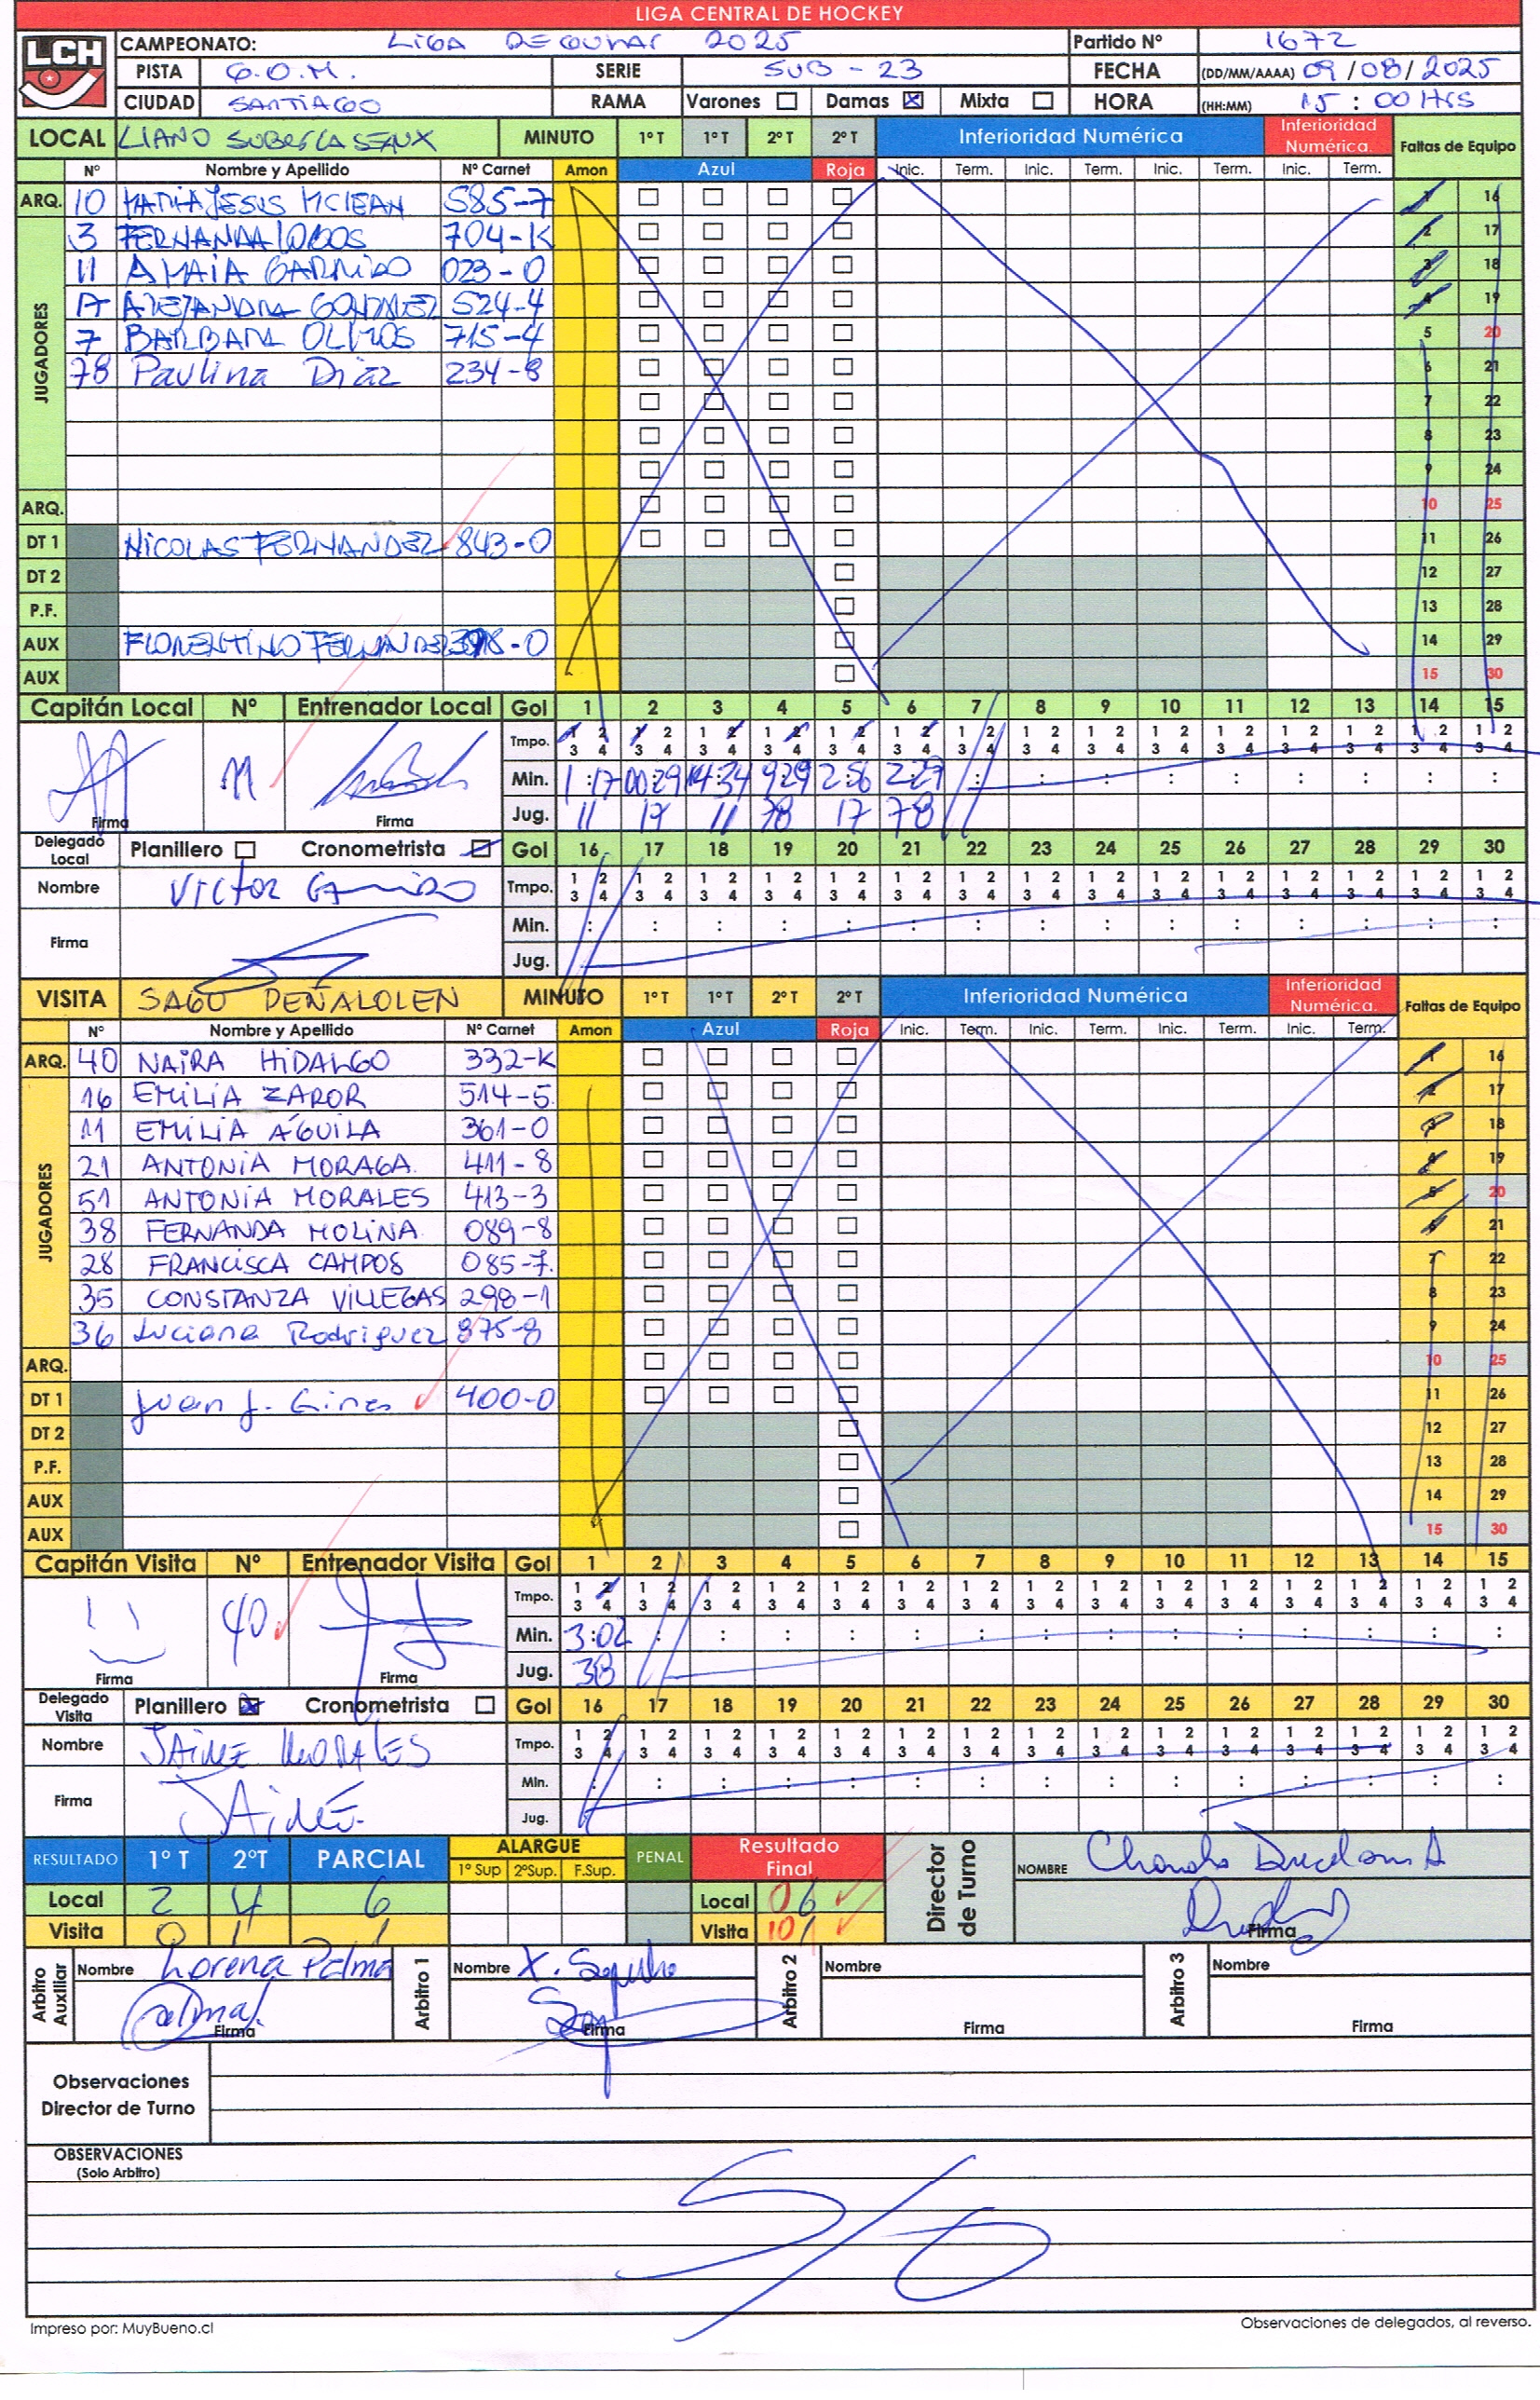 LIGA CENTRAL DE HOCKEY
LCH
CAMPEONATO: LIGA 2025 Partido Nº 1672
PISTA G.O.M. SERIE SUB - 23 FECHA (DD/MM/AAAA) 09 / 08 / 2025
CIUDAD SANTIAGO RAMA Varones Damas Mixta HORA (HH:MM) 15 : 00 Hrs
LOCAL LIANO SUBERCASEAUX MINUTO 1º T 1º T 2º T 2º T Inferioridad Numérica Inferioridad Numérica. Faltas de Equipo
Nº Nombre y Apellido Nº Carnet Amon Azul Roja Inic. Term. Inic. Term. Inic. Term. Inic. Term.
ARQ. 10 MARIA JESUS MCLEAN 585-7 1 16
JUGADORES
3 FERNANDA LOBOS 704-K 2 17
11 AMAIA GARRIDO 023-0 3 18
17 ALEJANDRA GONZALEZ 524-4 4 19
7 BARBARA OLIVOS 715-4 5 20
78 Paulina Díaz 234-8 6 21
7 22
8 23
9 24
ARQ. 10 25
DT 1 NICOLAS FERNANDEZ 843-0 11 26
DT 2 12 27
P.F. 13 28
AUX FLORENTINO FERNANDEZ 14 29
AUX 15 30
Capitán Local Nº Entrenador Local Gol 1 2 3 4 5 6 7 8 9 10 11 12 13 14 15
Tmpo. 1 2 1 2 1 2 1 2 1 2 1 2 1 2 1 2 1 2 1 2 1 2 1 2 1 2 1 2 1 2
3 4 3 4 3 4 3 4 3 4 3 4 3 4 3 4 3 4 3 4 3 4 3 4 3 4 3 4 3 4
11 Min. 1:17 00:29 14:34 9:29 2:56 2:27 : : : : : : : : :
Firma Firma Jug. 11 17 11 78 17 78
Delegado Local Planillero Cronometrista Gol 16 17 18 19 20 21 22 23 24 25 26 27 28 29 30
Nombre Victor Garrido Tmpo. 1 2 1 2 1 2 1 2 1 2 1 2 1 2 1 2 1 2 1 2 1 2 1 2 1 2 1 2 1 2
3 4 3 4 3 4 3 4 3 4 3 4 3 4 3 4 3 4 3 4 3 4 3 4 3 4 3 4 3 4
Firma Min. : : : : : : : : : : : : : : :
Jug.
VISITA SAGO PEÑALOLEN MINUTO 1º T 1º T 2º T 2º T Inferioridad Numérica Inferioridad Numérica. Faltas de Equipo
Nº Nombre y Apellido Nº Carnet Amon Azul Roja Inic. Term. Inic. Term. Inic. Term. Inic. Term.
ARQ. 40 NAIRA HIDALGO 332-K 1 16
JUGADORES
16 EMILIA ZAROR 514-5 2 17
11 EMILIA ÁGUILA 361-0 3 18
21 ANTONIA MORAGA 411-8 4 19
51 ANTONIA MORALES 413-3 5 20
38 FERNANDA MOLINA 089-8 6 21
28 FRANCISCA CAMPOS 085-7. 7 22
35 CONSTANZA VILLEGAS 298-1 8 23
36 Luciana Rodriguez 875-8 9 24
ARQ. 10 25
DT 1 Juan J. 400-0 11 26
DT 2 12 27
P.F. 13 28
AUX 14 29
AUX 15 30
Capitán Visita Nº Entrenador Visita Gol 1 2 3 4 5 6 7 8 9 10 11 12 13 14 15
Tmpo. 1 2 1 2 1 2 1 2 1 2 1 2 1 2 1 2 1 2 1 2 1 2 1 2 1 2 1 2 1 2
3 4 3 4 3 4 3 4 3 4 3 4 3 4 3 4 3 4 3 4 3 4 3 4 3 4 3 4 3 4
40 Min. 3:02 : : : : : : : : : : : : : :
Firma Firma Jug. 38
Delegado Visita Planillero Cronometrista Gol 16 17 18 19 20 21 22 23 24 25 26 27 28 29 30
Nombre JAIME MORALES Tmpo. 1 2 1 2 1 2 1 2 1 2 1 2 1 2 1 2 1 2 1 2 1 2 1 2 1 2 1 2 1 2
3 4 3 4 3 4 3 4 3 4 3 4 3 4 3 4 3 4 3 4 3 4 3 4 3 4 3 4 3 4
Firma JAIME Min. : : : : : : : : : : : : : : :
Jug.
RESULTADO 1º T 2ºT PARCIAL ALARGUE PENAL Resultado Final Director de Turno NOMBRE
1º Sup 2ºSup. F.Sup.
Local 2 4 6 Local 06
Visita 0 1 1 Visita 01 Firma
Arbitro Auxiliar Nombre Lorena Palma Arbitro 1 Nombre X. Arbitro 2 Nombre Arbitro 3 Nombre
Firma Firma Firma Firma
Observaciones
Director de Turno
OBSERVACIONES
(Solo Arbitro)
S/O
Impreso por: MuyBueno.cl Observaciones de delegados, al reverso.